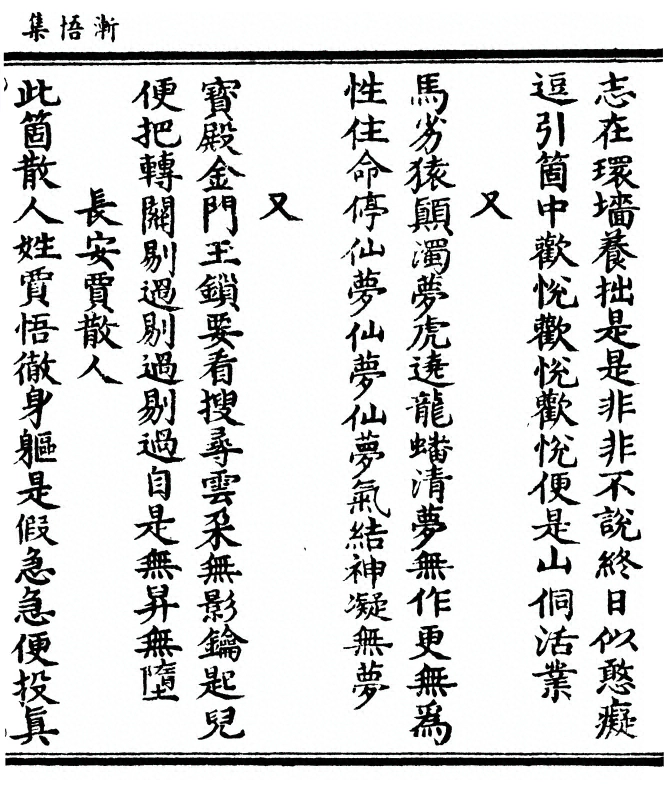 漸悟集
志在環墻養拙是是非非不說終日似憨癡
逗引箇中歡悅歡悅歡悅便是山侗活業
又
馬劣猿顛濁夢虎遶龍蟠清夢無作更無爲
性住命停仙夢仙夢仙夢氣結神凝無夢
又
寶殿金門玉鎖要看搜尋雲朶無影鑰匙兒
便把轉關剔過剔過剔過自是無昇無墮
長安賈散人
此箇散人姓賈悟徹身軀是假急急便投眞